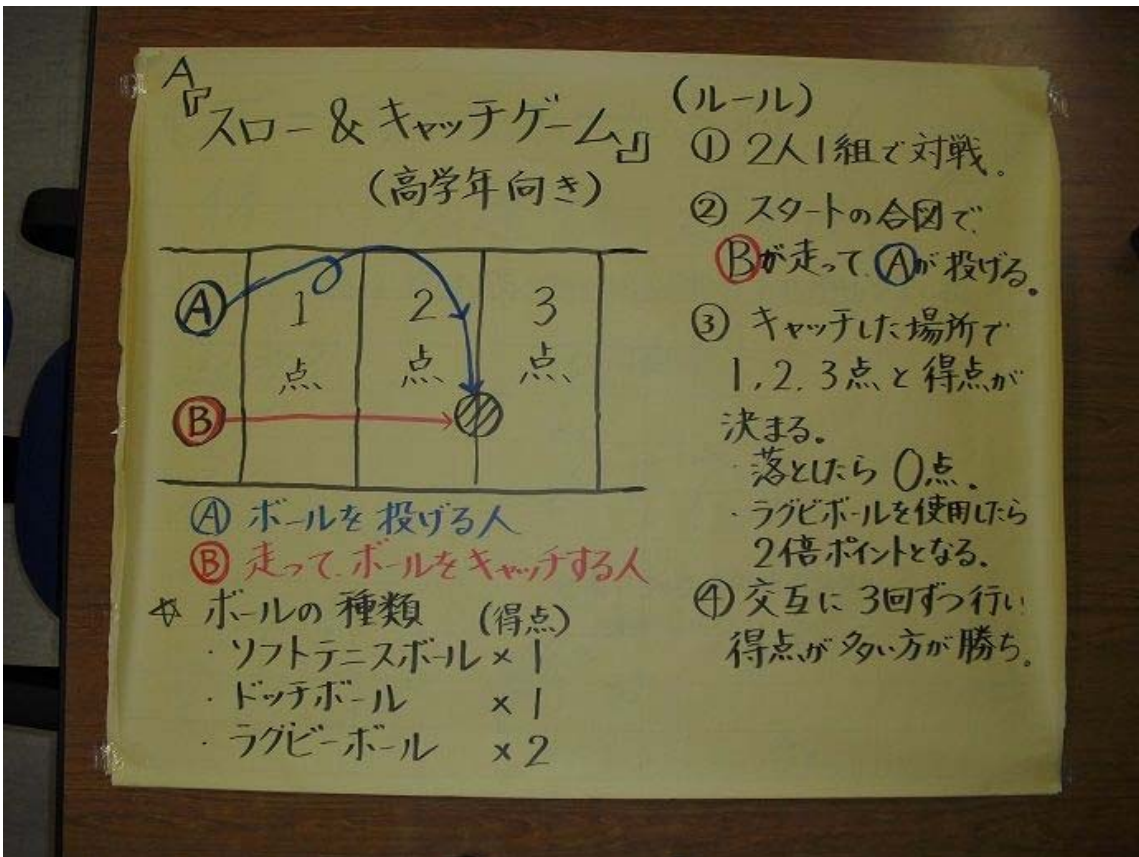 A
『スロー&キャッチゲーム』
(高学年向き)
Ⓐ
Ⓑ
1点
2点
3点
Ⓐ ボールを投げる人
Ⓑ 走って、ボールをキャッチする人
☆ ボールの種類 (得点)
・ソフトテニスボール × 1
・ドッチボール × 1
・ラグビーボール × 2
(ルール)
① 2人1組で対戦。
② スタートの合図で、
Ⓑが走って、Ⓐが投げる。
③ キャッチした場所で
1,2,3点と得点が
決まる。
・落としたら 0点。
・ラグビボールを使用したら
2倍ポイントとなる。
④ 交互に3回ずつ行い
得点が多い方が勝ち。